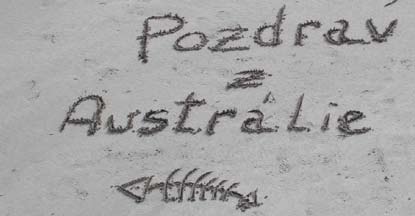 Pozdrav
z
Austrálie